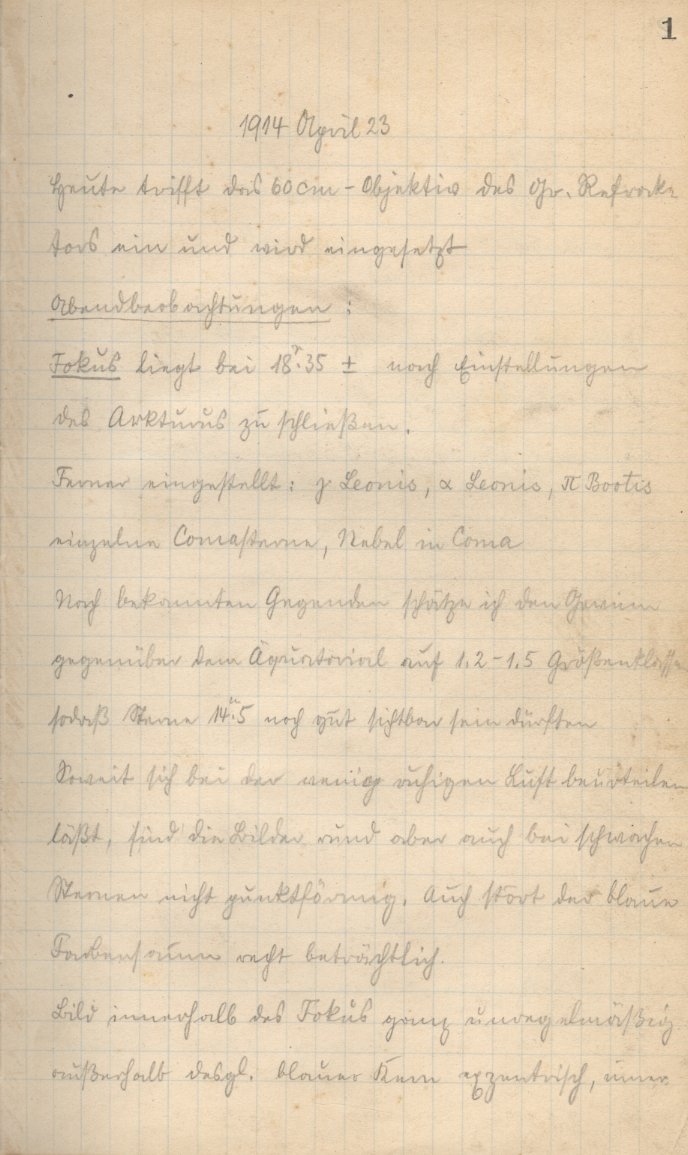 1
1914 April 23
Heute trifft das 60cm-Objektiv des Gr. Refrak-
tors ein und wird eingesetzt
Abendbeobachtungen:
Fokus liegt bei 18.35 ± nach Einstellungen
des Arkturus zu schließen.
Ferner eingestellt: γ Leonis, α Leonis, π Bootis
einzelne Comasterne, Nebel in Coma
Nach bekannten Gegenden schätze ich den Gewinn
gegenüber dem Äquatorial auf 1.2-1.5 Größenklasse
sodaß Sterne 14ᵐ.5 noch gut sichtbar sein dürften
Soweit sich bei der wenig ruhigen Luft beurteilen
läßt, sind die Bilder rund aber auch bei schwachen
Sternen nicht punktförmig. Auch stört der blaue
Farbensaum recht beträchtlich.
Bild innerhalb des Fokus ganz unregelmäßig
außerhalb desgl. blauer Kern exzentrisch, inner